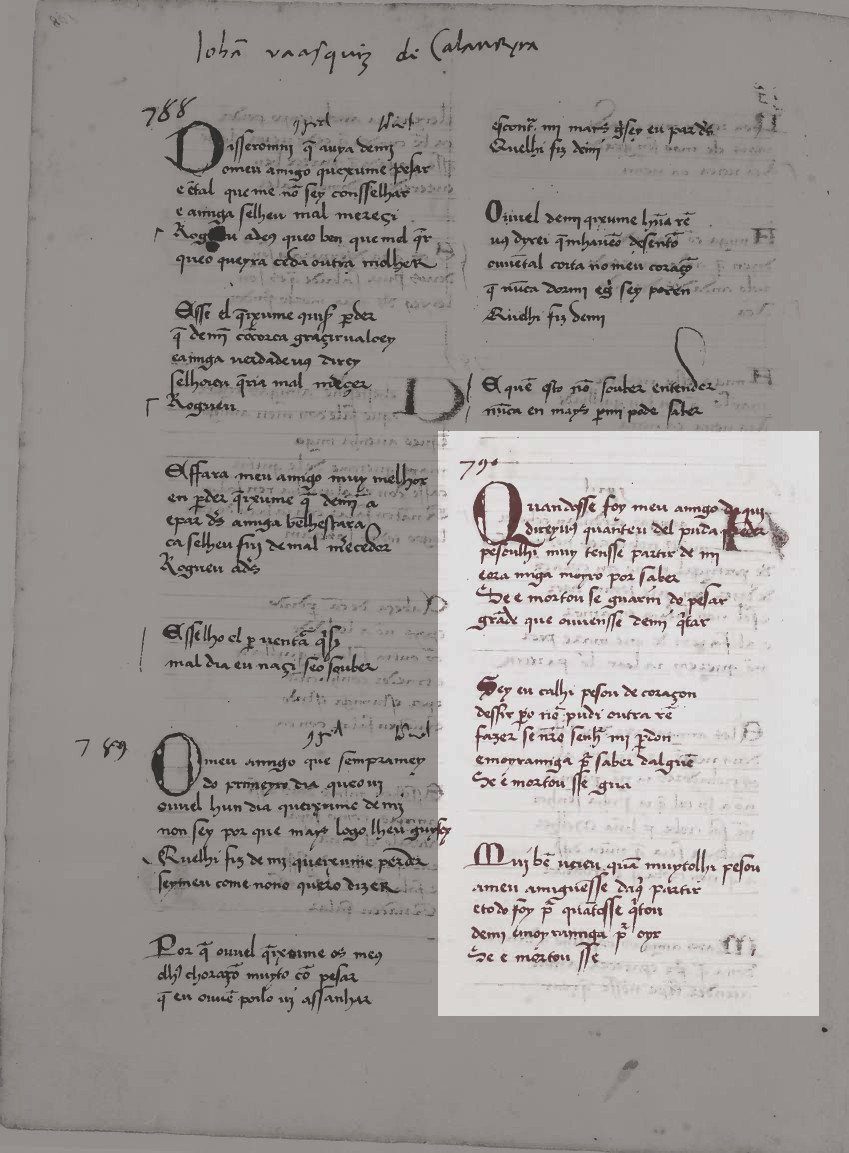 Iohã vaasquiz de Calaueyra
788
Disseromni q̃ auya demi
omeu amigo queixume pesar
e e tal queme nõ sey consselhar
e amiga selheu mal mereçi
Rogueu adeus queo ben quemel q̃r
queo queyra cẽda outra molher
Esse el q̃ixume quis p̃der
q̃ demi
eamiga uerdade uꝯ direy
selhoieu q̃ria mal
Rogueu
Essara meu amigo muy melhor
en p̃der q̃ixume q̃ demi a
epar d's amiga bẽlhestara
ca selheu fui de mal m̃ecedor
Rogueu ad's
Esselho el p uentã q̃s
mal dia eu naçi seo souber
789
Omeu amigo que sempramey
do primeyro dia queo ui
ouuel hun dia queixume de mi
non sey por que mays logo lheu guysey
Quelhi fiz de mi queixume perder
seymeu come nono quero dizer
Por q̃ ouuel q̃ixume os meꝯ
olh' choraçõ muyto cõ pesar
q̃ eu ouuẽ poilo ui assanhar
escont' mi mays g̃sey eu par d's
Quelhi fiz demi
Ouuel demi qixume hña rẽ
uꝯ dyrei q̃mhaueo desentõ
ouuẽtal coita no meu coraçõ
q̃ nũca dormi eg̃ sey poren
Quelhi fiz demi
E a quẽ esto nõ souber entender
nũca en mays p mi pode saber
790
Quandosse foy meu amigo daqui
direyuꝯ quanteu del puda p̃nder
pesoulhi muy tensse partir de mi
eora miga moyro por saber
Se e mortou se guariu do pesar
grãde que ouuensse demi q̃tar
Sey eu calhi pesou de coraçon
dessir p̃o nõ pudi outra rẽ
fazer se nr̃o senh' mi p̃don
emoyramiga p̃ saber dalguẽ
Se e mortou sse gua
Mui bẽ uereu quã muytolhi pesou
ameu amiguesse daq̃ partir
etodo foy p̃ quãtosse q̃tou
demi emoyramiga p̃ oyr
Se e mortou sse